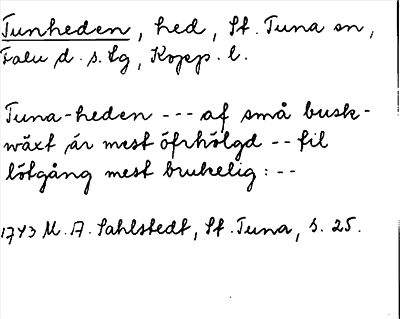 Tunheden, hed, St. Tuna sn,
Falu d. s. lg, Kopp. l.
Tuna-heden --- af små busk-
wäxt är mest öfrhölgd -- til
lötgång mest brukelig: --
1743 M. A. Sahlstedt, St. Tuna, s. 25.